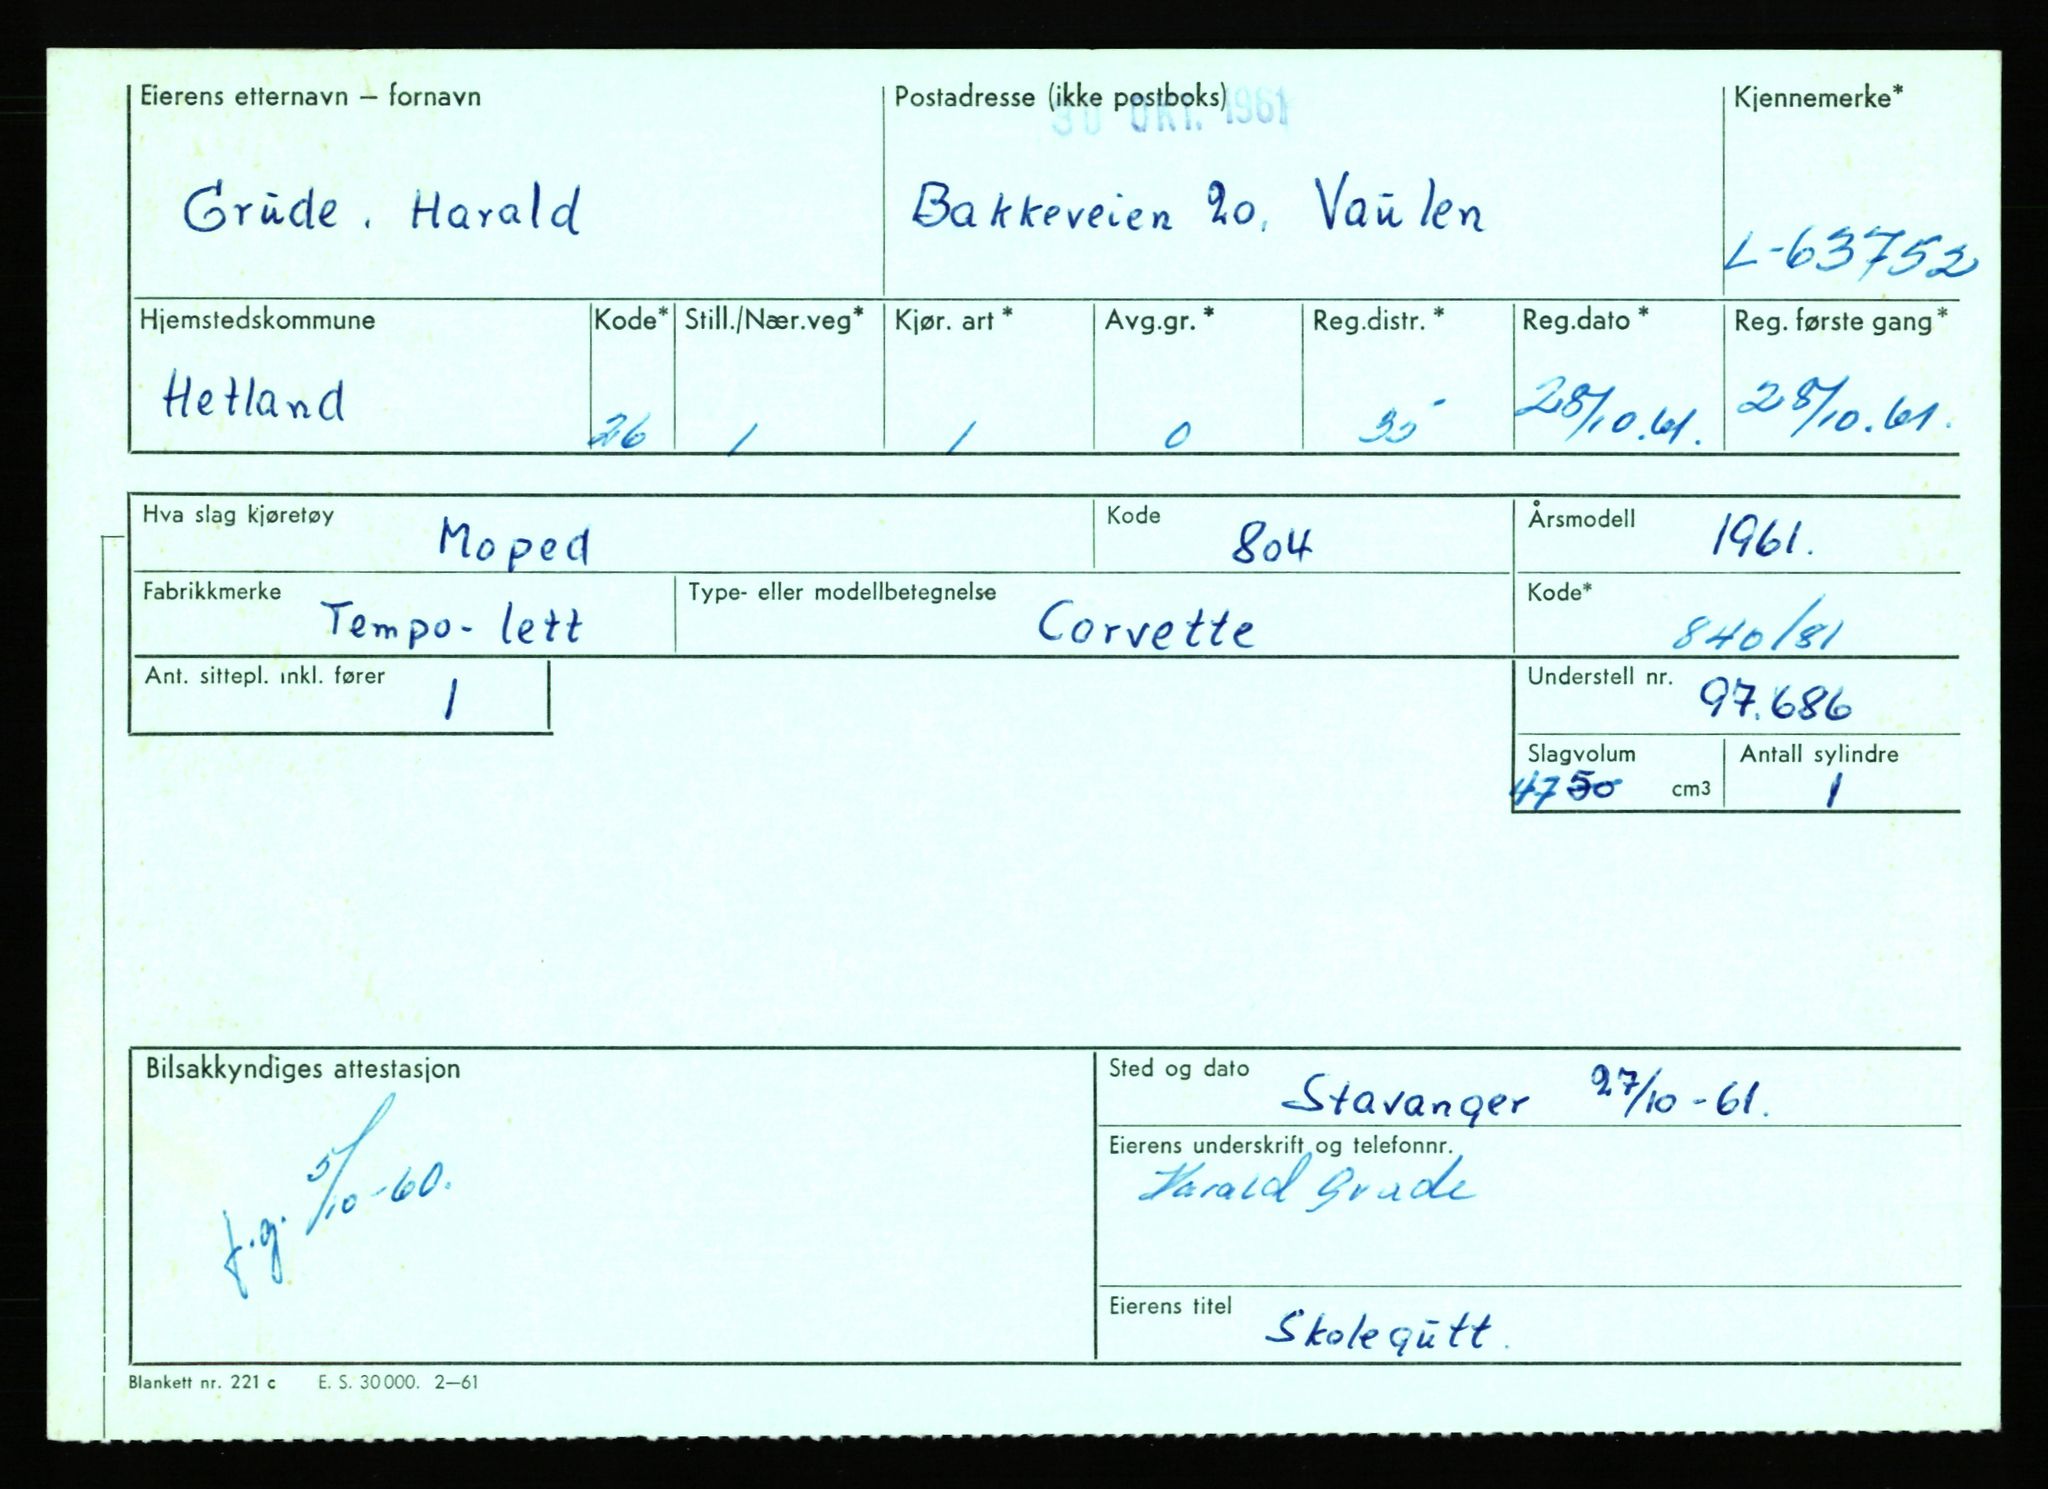 Eierens etternavn – fornavn
Postadresse (ikke postboks)
Kjennemerke*
30 OKT. 1961
Grude, Harald
Bakkeveien 20, Vaulen
L-63752
Hjemstedskommune
Kode*
Still./Nær.veg*
Kjør. art *
Avg.gr. *
Reg.distr. *
Reg.dato *
Reg. første gang*
Hetland
26
1
1
0
35
28/10.61.
28/10.61.
Hva slag kjøretøy
Moped
Kode
804
Årsmodell
1961.
Fabrikkmerke
Tempo-lett
Type- eller modellbetegnelse
Corvette
Kode*
840/81
Ant. sittepl. inkl. fører
1
Understell nr.
97.686
Slagvolum
47 50 cm3
Antall sylindre
1
Bilsakkyndiges attestasjon
f.g. 5/10-60.
Sted og dato
Stavanger 27/10-61.
Eierens underskrift og telefonnr.
Harald Grude
Eierens titel
Skolegutt.
Blankett nr. 221 c E. S. 30 000. 2—61